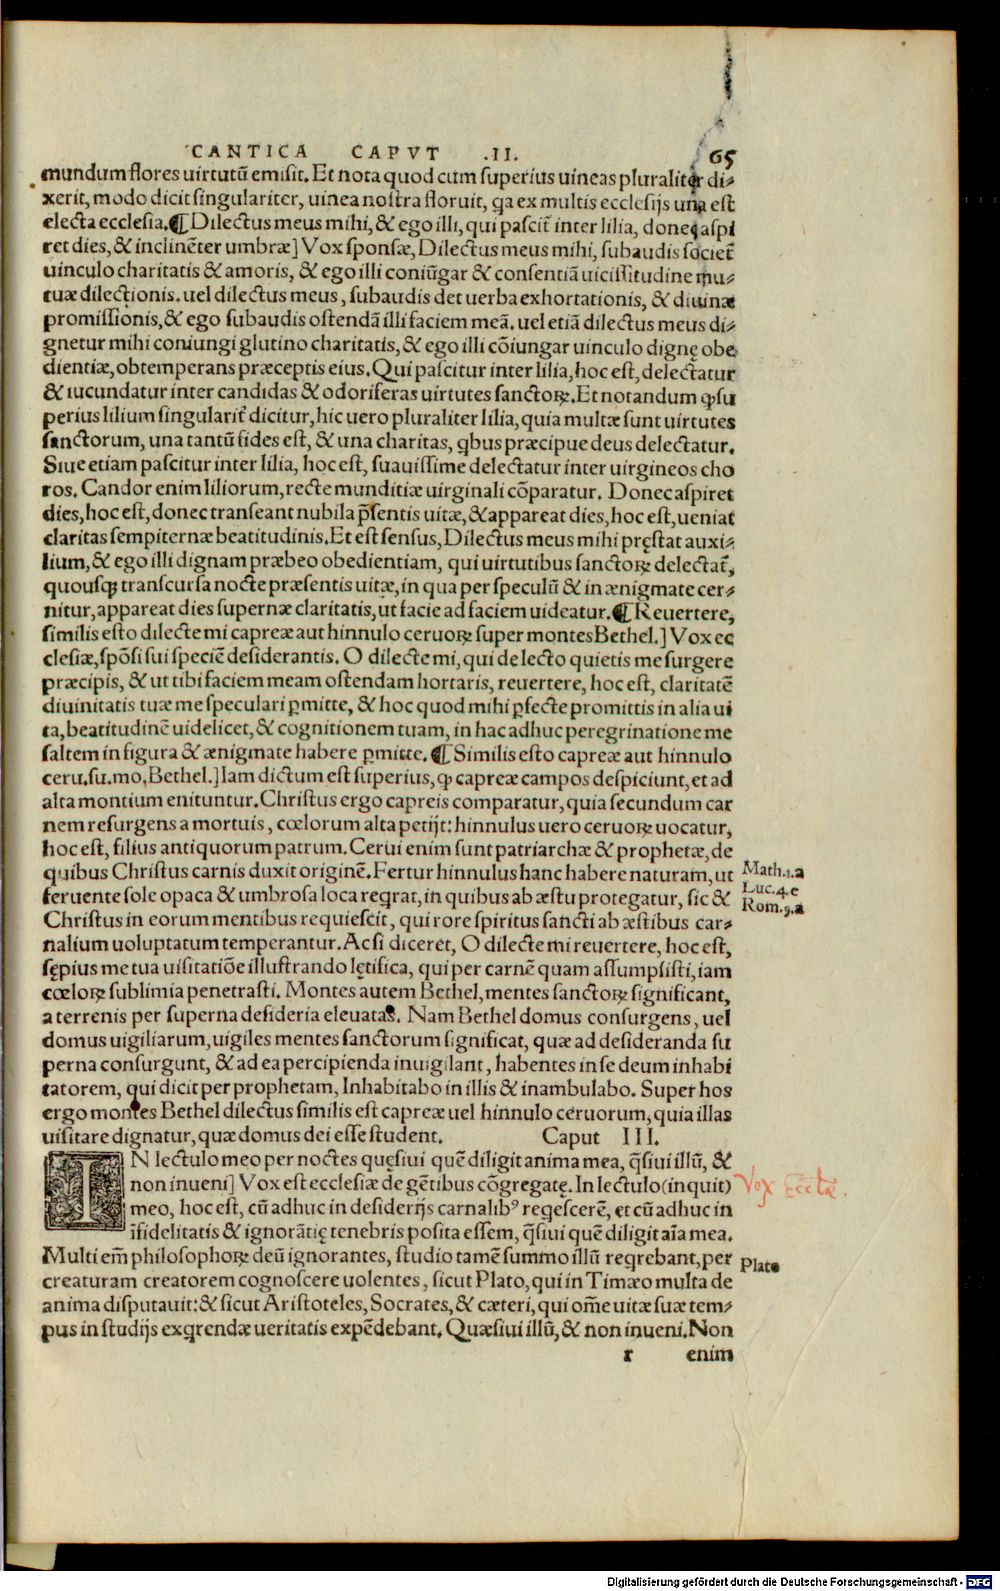 CANTICA CAPVT .II. 65
mundum flores uirtutũ emisit. Et nota quod cum superius uineas pluraliter di⸗
xerit, modo dicit singulariter, uinea nostra floruit, qa ex multis ecclesijs una est
electa ecclesia. ¶ Dilectus meus mihi, & ego illi, qui pascit̃ inter lilia, donec aspi
ret dies, & inclinẽter umbræ] Vox sponsæ, Dilectus meus mihi, subaudis societ̃
uinculo charitatis & amoris, & ego illi coniũgar & consentiã uicissitudine mu⸗
tuæ dilectionis. uel dilectus meus, subaudis det uerba exhortationis, & diuinæ
promissionis, & ego subaudis ostendã illi faciem meã. uel etiã dilectus meus di⸗
gnetur mihi coniungi glutino charitatis, & ego illi cõiungar uinculo dignę obe
dientiæ, obtemperans præceptis eius. Qui pascitur inter lilia, hoc est, delectatur
& iucundatur inter candidas & odoriferas uirtutes sanctoꝝ. Et notandum ꝙ su
perius lilium singularit̃ dicitur, hic uero pluraliter lilia, quia multæ sunt uirtutes
sanctorum, una tantũ fides est, & una charitas, qbus præcipue deus delectatur.
Siue etiam pascitur inter lilia, hoc est, suauissime delectatur inter uirgineos cho
ros. Candor enim liliorum, recte munditiæ uirginali cõparatur. Donec aspiret
dies, hoc est, donec transeant nubila p̃sentis uitæ, & appareat dies, hoc est, ueniat
claritas sempiternæ beatitudinis. Et est sensus, Dilectus meus mihi pręstat auxi⸗
lium, & ego illi dignam præbeo obedientiam, qui uirtutibus sanctoꝝ delectat̃,
quousqꝫ transcursa nocte præsentis uitæ, in qua per speculũ & in ænigmate cer⸗
nitur, appareat dies supernæ claritatis, ut facie ad faciem uideatur. ¶ Reuertere,
similis esto dilecte mi capreæ aut hinnulo ceruoꝝ super montes Bethel.] Vox ec
clesiæ, spõsi sui speciẽ desiderantis. O dilecte mi, qui de lecto quietis me surgere
præcipis, & ut tibi faciem meam ostendam hortaris, reuertere, hoc est, claritatẽ
diuinitatis tuæ me speculari ꝑmitte, & hoc quod mihi ꝑfecte promittis in alia ui
ta, beatitudinẽ uidelicet, & cognitionem tuam, in hac adhuc peregrinatione me
saltem in figura & ænigmate habere ꝑmitte. ¶ Similis esto capreæ aut hinnulo
ceru. su. mo. Bethel.] Iam dictum est superius, ꝙ capreæ campos despiciunt, et ad
alta montium enituntur. Christus ergo capreis comparatur, quia secundum car
nem resurgens a mortuis, cœlorum alta petijt: hinnulus uero ceruoꝝ uocatur,
hoc est, filius antiquorum patrum. Cerui enim sunt patriarchæ & prophetæ, de
quibus Christus carnis duxit originẽ. Fertur hinnulus hanc habere naturam, ut
feruente sole opaca & umbrosa loca reqrat, in quibus ab æstu protegatur, sic &
Christus in eorum mentibus requiescit, qui rore spiritus sancti ab æstibus car⸗
nalium uoluptatum temperantur. Ac si diceret, O dilecte mi reuertere, hoc est,
sępius me tua uisitatiõe illustrando lętifica, qui per carnẽ quam assumpsisti, iam
cœloꝝ sublimia penetrasti. Montes autem Bethel, mentes sanctoꝝ significant,
a terrenis per superna desideria eleuatas. Nam Bethel domus consurgens, uel
domus uigiliarum, uigiles mentes sanctorum significat, quæ ad desideranda su
perna consurgunt, & ad ea percipienda inuigilant, habentes in se deum inhabi
tatorem, qui dicit per prophetam, Inhabitabo in illis & inambulabo. Super hos
ergo montes Bethel dilectus similis est capreæ uel hinnulo ceruorum, quia illas
uisitare dignatur, quæ domus dei esse student. Caput III.
IN lectulo meo per noctes quęsiui quẽ diligit anima mea, q̃siui illũ, &
non inueni] Vox est ecclesiæ de gẽtibus cõgregatę. In lectulo (inquit)
meo, hoc est, cũ adhuc in desiderijs carnalibꝰ reqescerẽ, et cũ adhuc in
ĩfidelitatis & ignorãtię tenebris posita essem, q̃siui quẽ diligit aĩa mea.
Multi em̃ philosophoꝝ deũ ignorantes, studio tamẽ summo illũ reqrebant, per
creaturam creatorem cognoscere uolentes, sicut Plato, qui in Timæo multa de
anima disputauit: & sicut Aristoteles, Socrates, & cæteri, qui om̃e uitæ suæ tem⸗
pus in studijs exqrendæ ueritatis expẽdebant. Quæsiui illũ, & non inueni. Non
r enim
Math.1.a
Luc.4.e
Rom.9.a
Vox Eccłæ.
Plato
Digitalisierung gefördert durch die Deutsche Forschungsgemeinschaft - DFG